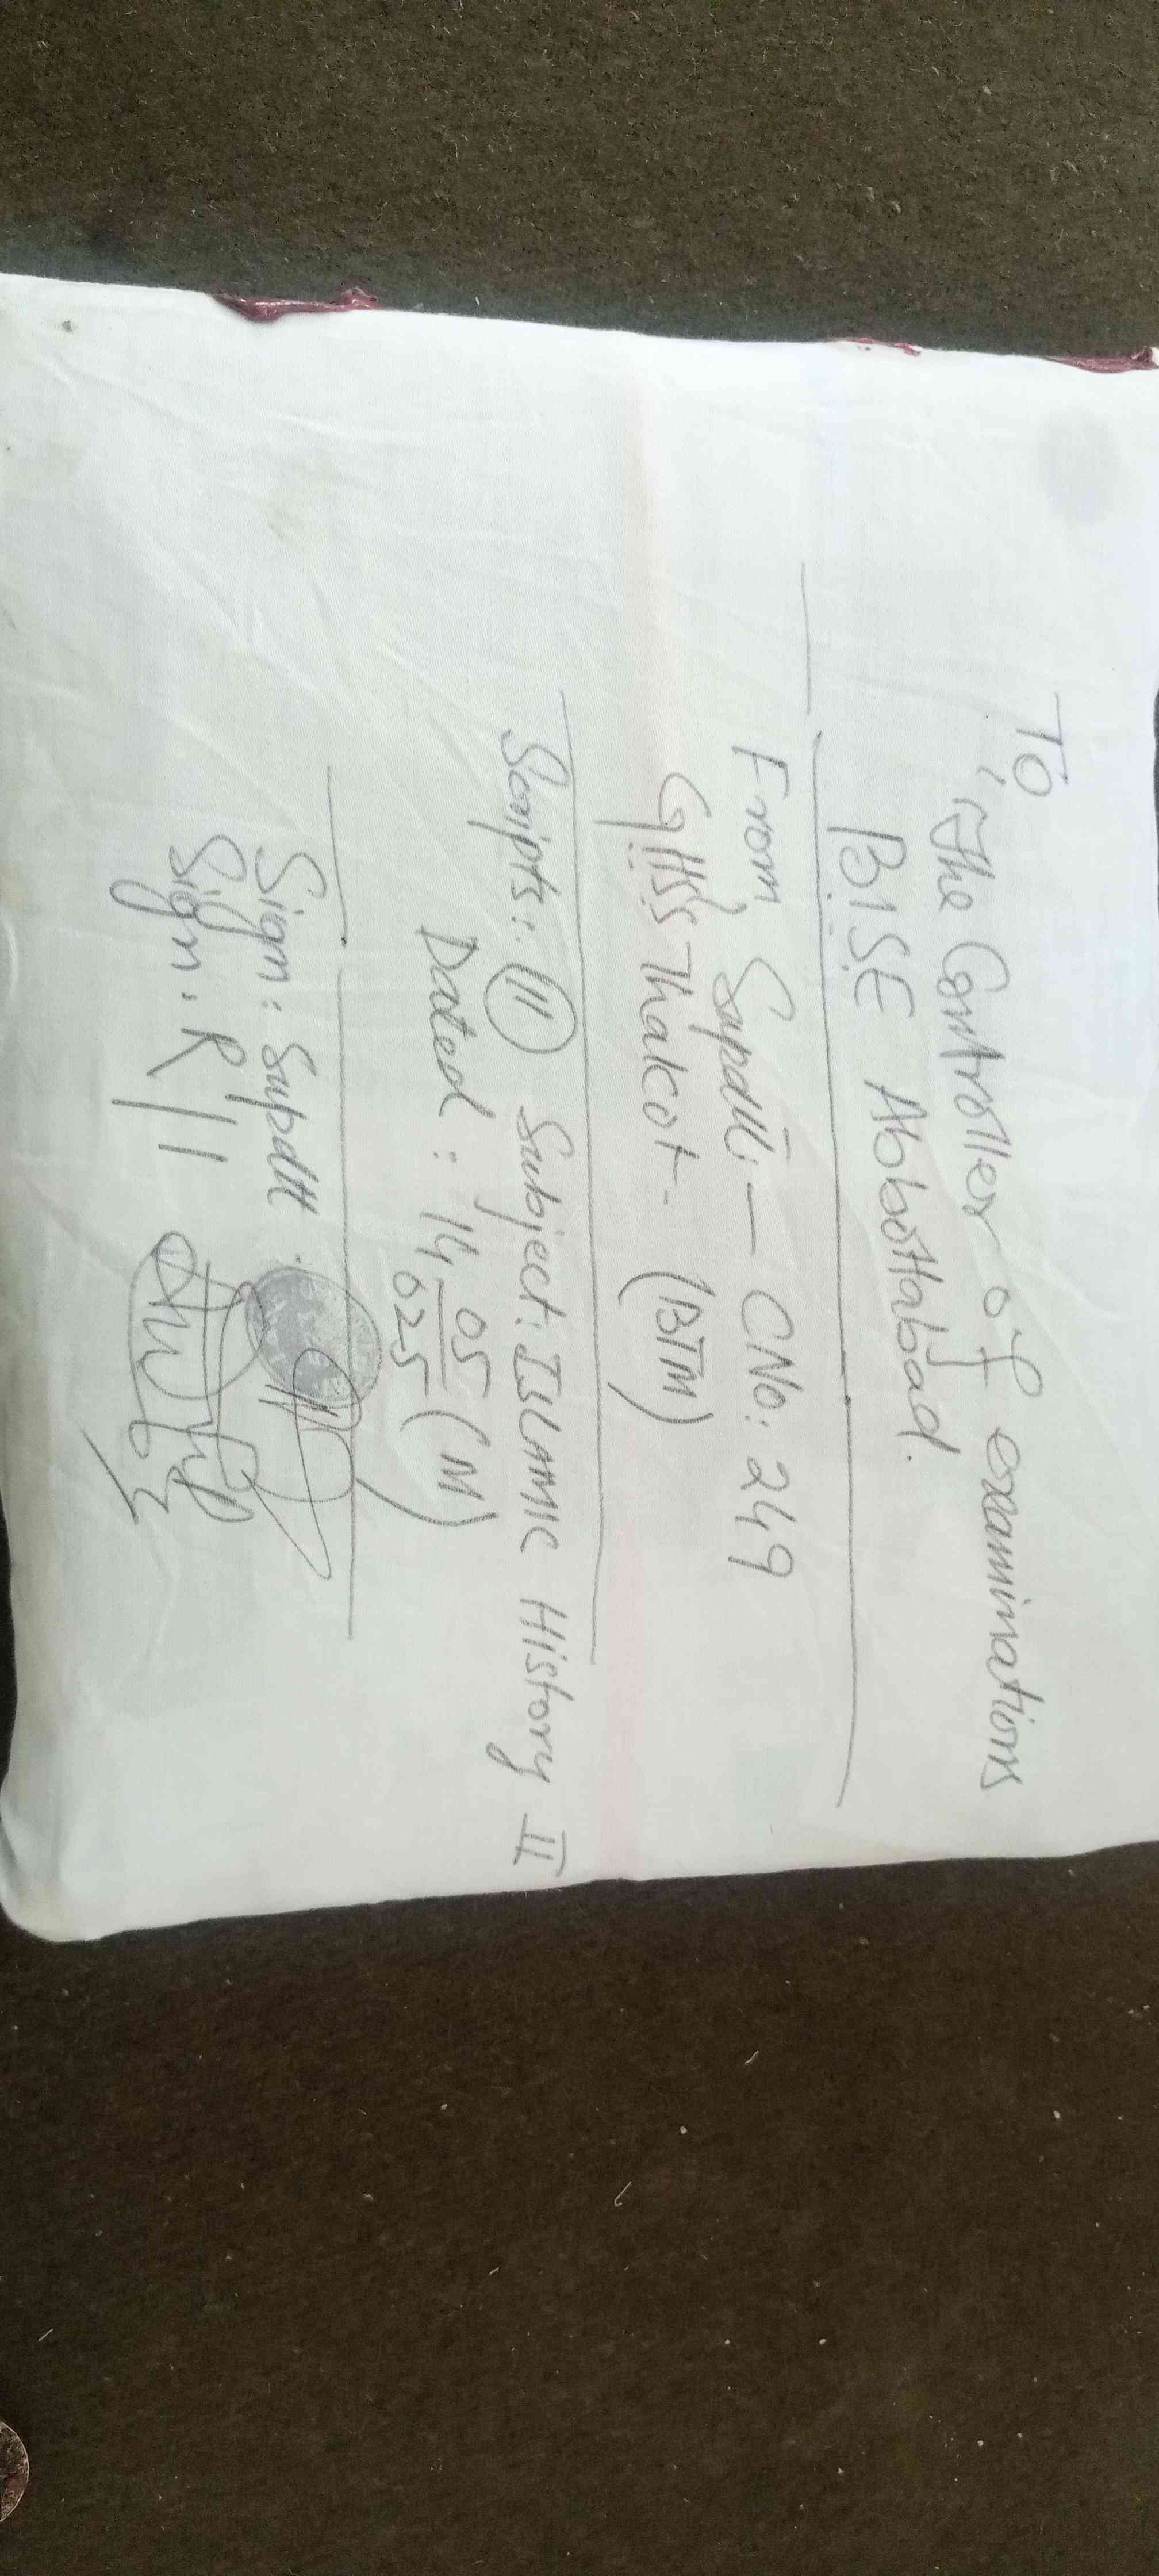 To
The Controller of examinations
B.I.S.E Abbottabad.
From Supdtt: — CNo: 249
G.H.S.S Thalcot - (BTM)
Scripts: 11 Subject: ISLAMIC History II
Dated: 14 05 025 (M)
Sign: Supdtt.
Sign: R/I